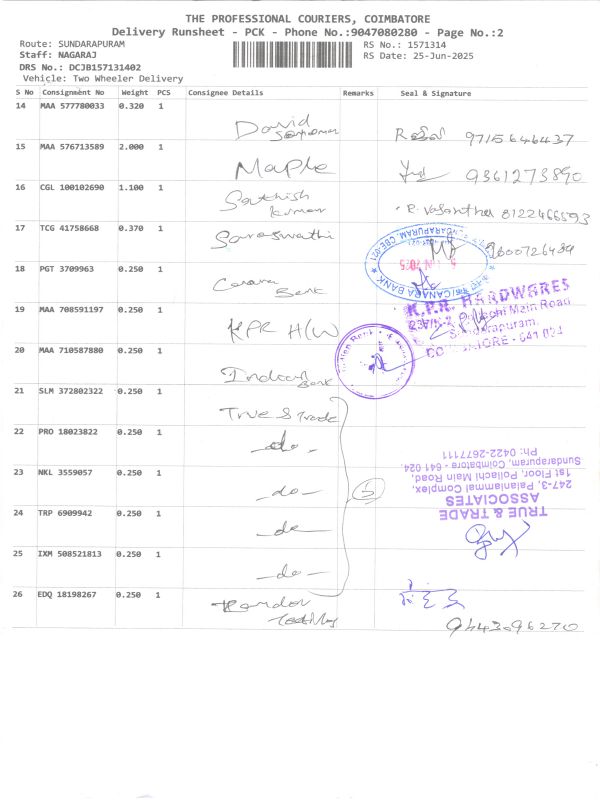 THE PROFESSIONAL COURIERS, COIMBATORE
Delivery Runsheet - PCK - Phone No.:9047080280 - Page No.:2
Route: SUNDARAPURAM
RS No.: 1571314
Staff: NAGARAJ
RS Date: 25-Jun-2025
DRS No.: DCJB157131402
Vehicle: Two Wheeler Delivery
S No Consignment No Weight PCS Consignee Details Remarks Seal & Signature
14 MAA 577780033 0.320 1
David
9715646437
15 MAA 576713589 2.000 1
Maple
9361273890
16 CGL 100102690 1.100 1
Sathish
Kumar
R. Vasantha 8122466593
17 TCG 41758668 0.370 1
Saraswathi
9600726439
18 PGT 3709963 0.250 1
Canara
Bank
CANARA BANK
19 MAA 708591197 0.250 1
KPR H/W
K.P.R. HARDWARES
Pollachi Main Road
Sundarapuram,
COIMBATORE - 641 024
20 MAA 710587880 0.250 1
Indian
Bank
Indian Bank
21 SLM 372802322 0.250 1
True & Trade
22 PRO 18023822 0.250 1
- do -
23 NKL 3559057 0.250 1
- do -
5
24 TRP 6909942 0.250 1
- do -
TRUE & TRADE
ASSOCIATES
247-3, Palaniammal Complex,
1st Floor, Pollachi Main Road,
Sundarapuram, Coimbatore - 641 024.
Ph: 0422-2677111
25 IXM 508521813 0.250 1
- do -
26 EDQ 18198267 0.250 1
9443096270